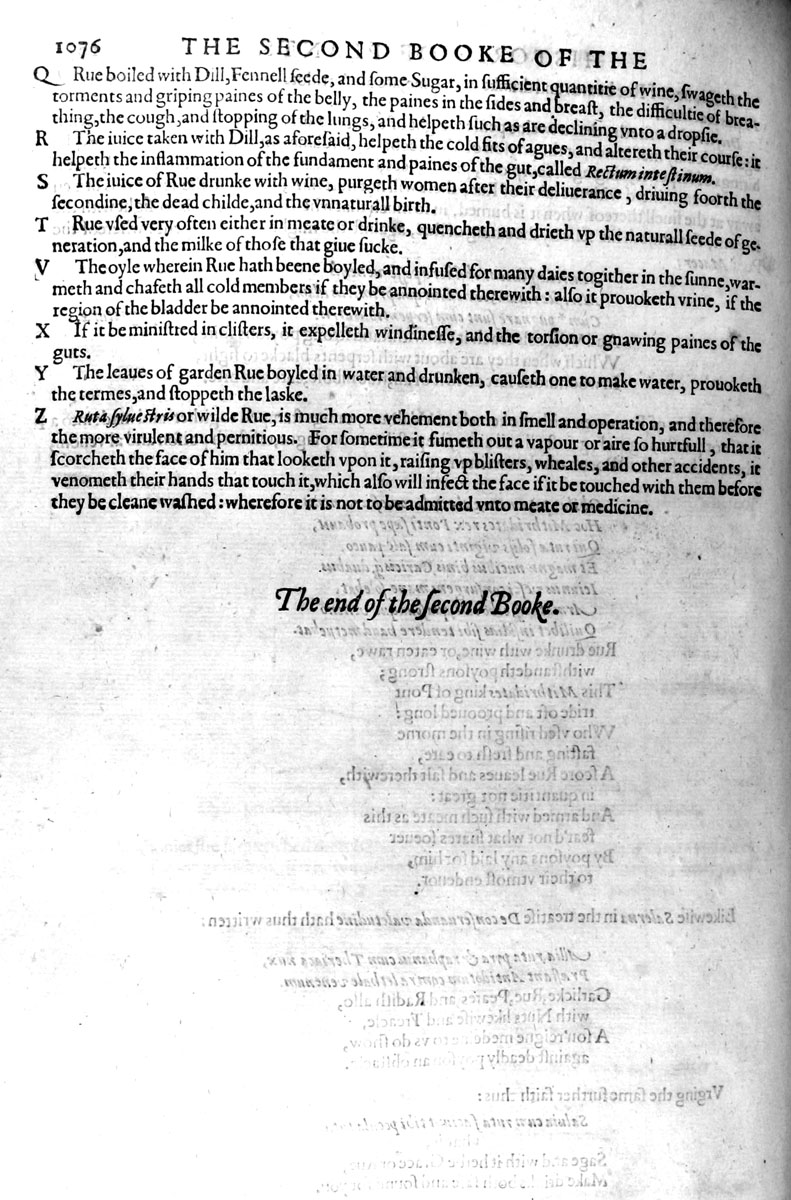 1076 THE SECOND BOOKE OF THE
Q Rue boiled with Dill, Fennell ſeede, and ſome Sugar, in ſufficient quantitie of wine, ſwageth the
torments and griping paines of the belly, the paines in the ſides and breaſt, the difficultie of brea-
thing, the cough, and ſtopping of the lungs, and helpeth ſuch as are declining vnto a dropſie.
R The iuice taken with Dill, as aforeſaid, helpeth the cold fits of agues, and altereth their courſe: it
helpeth the inflammation of the fundament and paines of the gut, called Rectum inteſtinum.
S The iuice of Rue drunke with wine, purgeth women after their deliuerance, driuing foorth the
ſecondine, the dead childe, and the vnnaturall birth.
T Rue vſed very often either in meate or drinke, quencheth and drieth vp the naturall ſeede of ge-
neration, and the milke of thoſe that giue ſucke.
V The oyle wherein Rue hath beene boyled, and infuſed for many daies togither in the ſunne, war-
meth and chafeth all cold members if they be annointed therewith: alſo it prouoketh vrine, if the
region of the bladder be annointed therewith.
X If it be miniſtred in cliſters, it expelleth windineſſe, and the torſion or gnawing paines of the
guts.
Y The leaues of garden Rue boyled in water and drunken, cauſeth one to make water, prouoketh
the termes, and ſtoppeth the laske.
Z Ruta ſylueſtris or wilde Rue, is much more vehement both in ſmell and operation, and therefore
the more virulent and pernitious. For ſometime it fumeth out a vapour or aire ſo hurtfull, that it
ſcorcheth the face of him that looketh vpon it, raiſing vp bliſters, wheales, and other accidents, it
venometh their hands that touch it, which alſo will infect the face if it be touched with them before
they be cleane waſhed: wherefore it is not to be admitted vnto meate or medicine.
The end of the ſecond Booke.